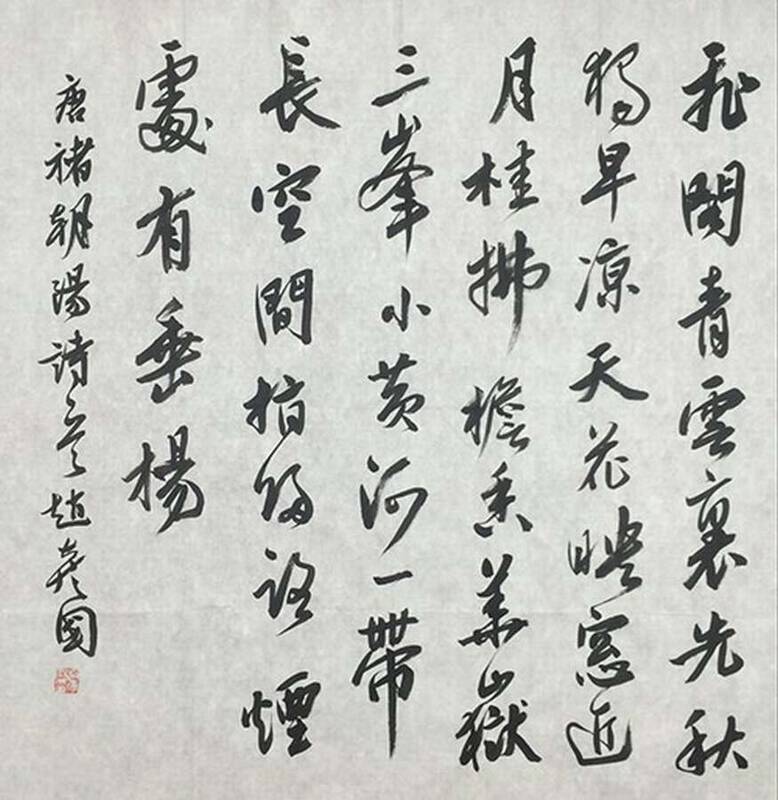 飛閣青雲裏先秋
獨早涼天花映窓近
月桂拂檐香華山嶽
三峯小黃河一帶
長空間指歸路煙
處有垂楊
唐褚朝陽詩 趙 國